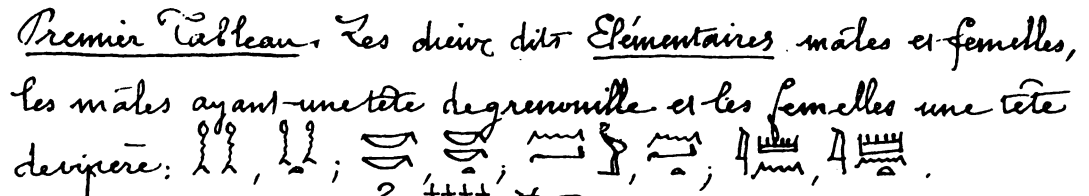 Premier Tableau. Les dieux dits Elémentaires mâles et femelles,
les mâles ayant une tête de grenouille et les femelles une tête
de vipère: 𓎛𓎛, 𓎛𓎛𓏏; 𓎡𓎡, 𓎡𓎡𓏏; , ; 𓇋𓏠𓈖, 𓇋𓏠𓈖𓏏.